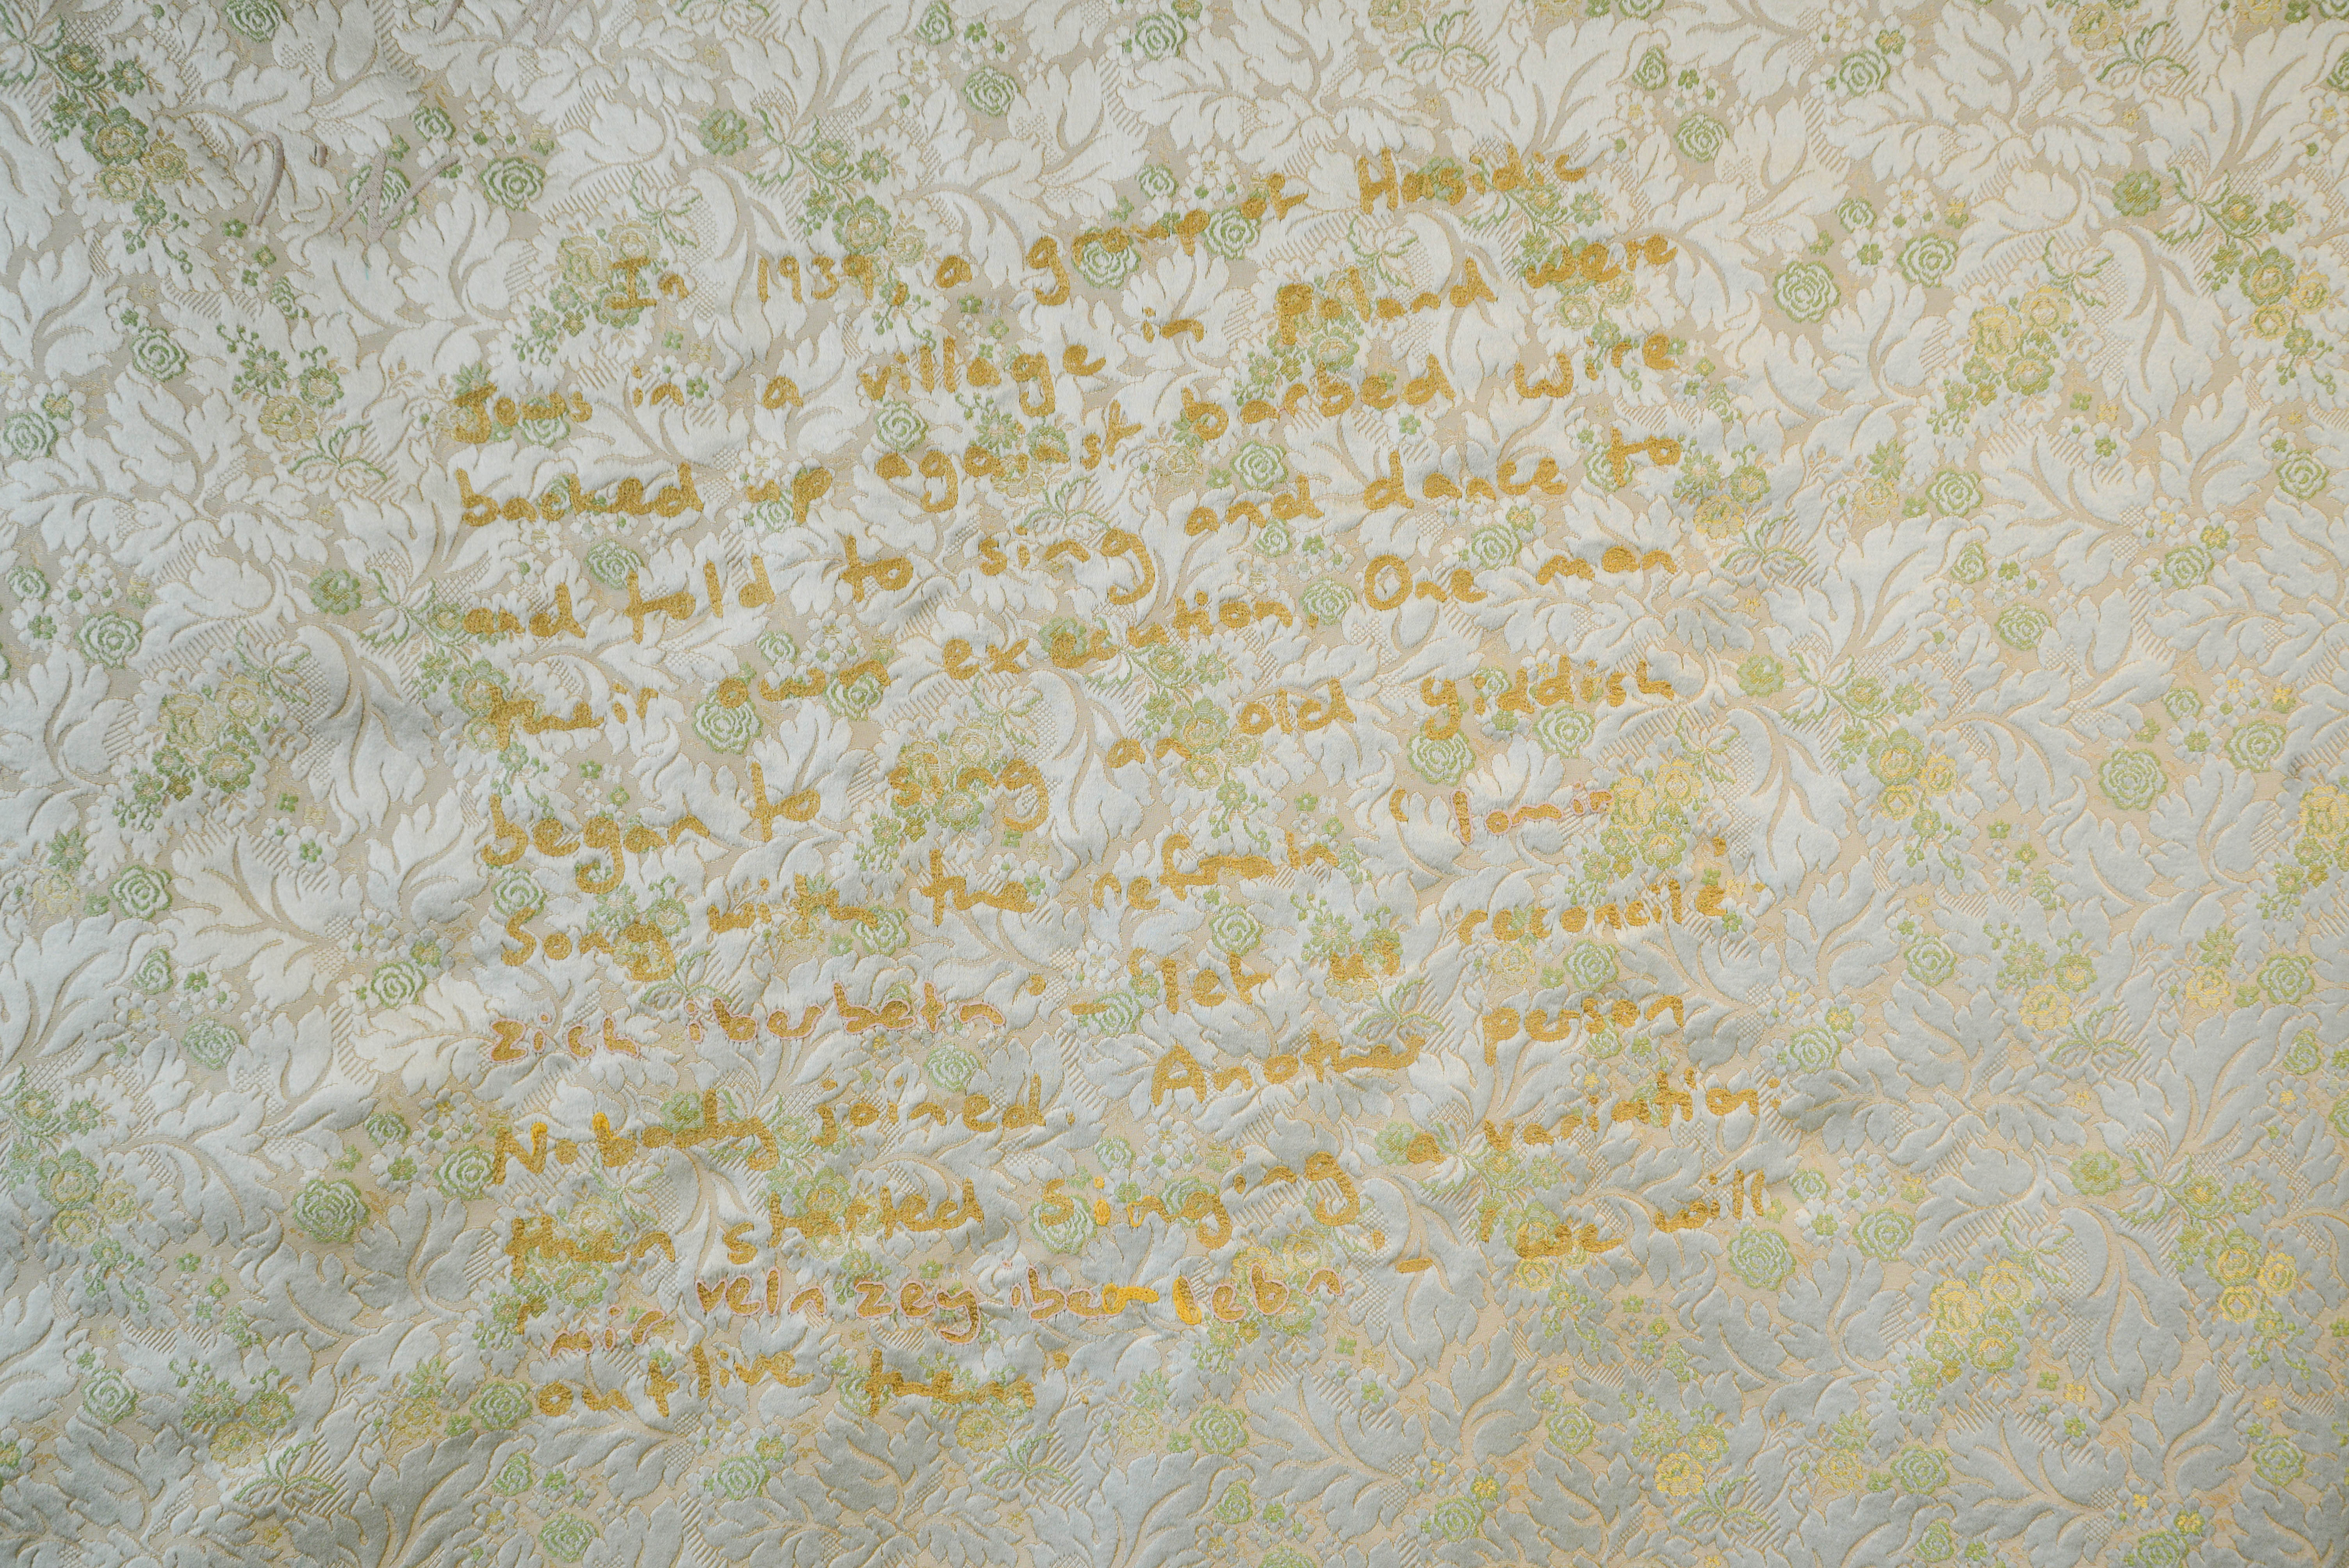 In 1939, a group of Hasidic
Jews in a village in Poland were
backed up against barbed wire
and told to sing and dance to
their own execution. One man
began to sing an old yiddish
song with the refrain 'lomir
zich iberbetn' - 'let us reconcile'
Nobody joined. Another person
then started singing a variation:
'mir veln zey iberlebn' - 'we will
outlive them'